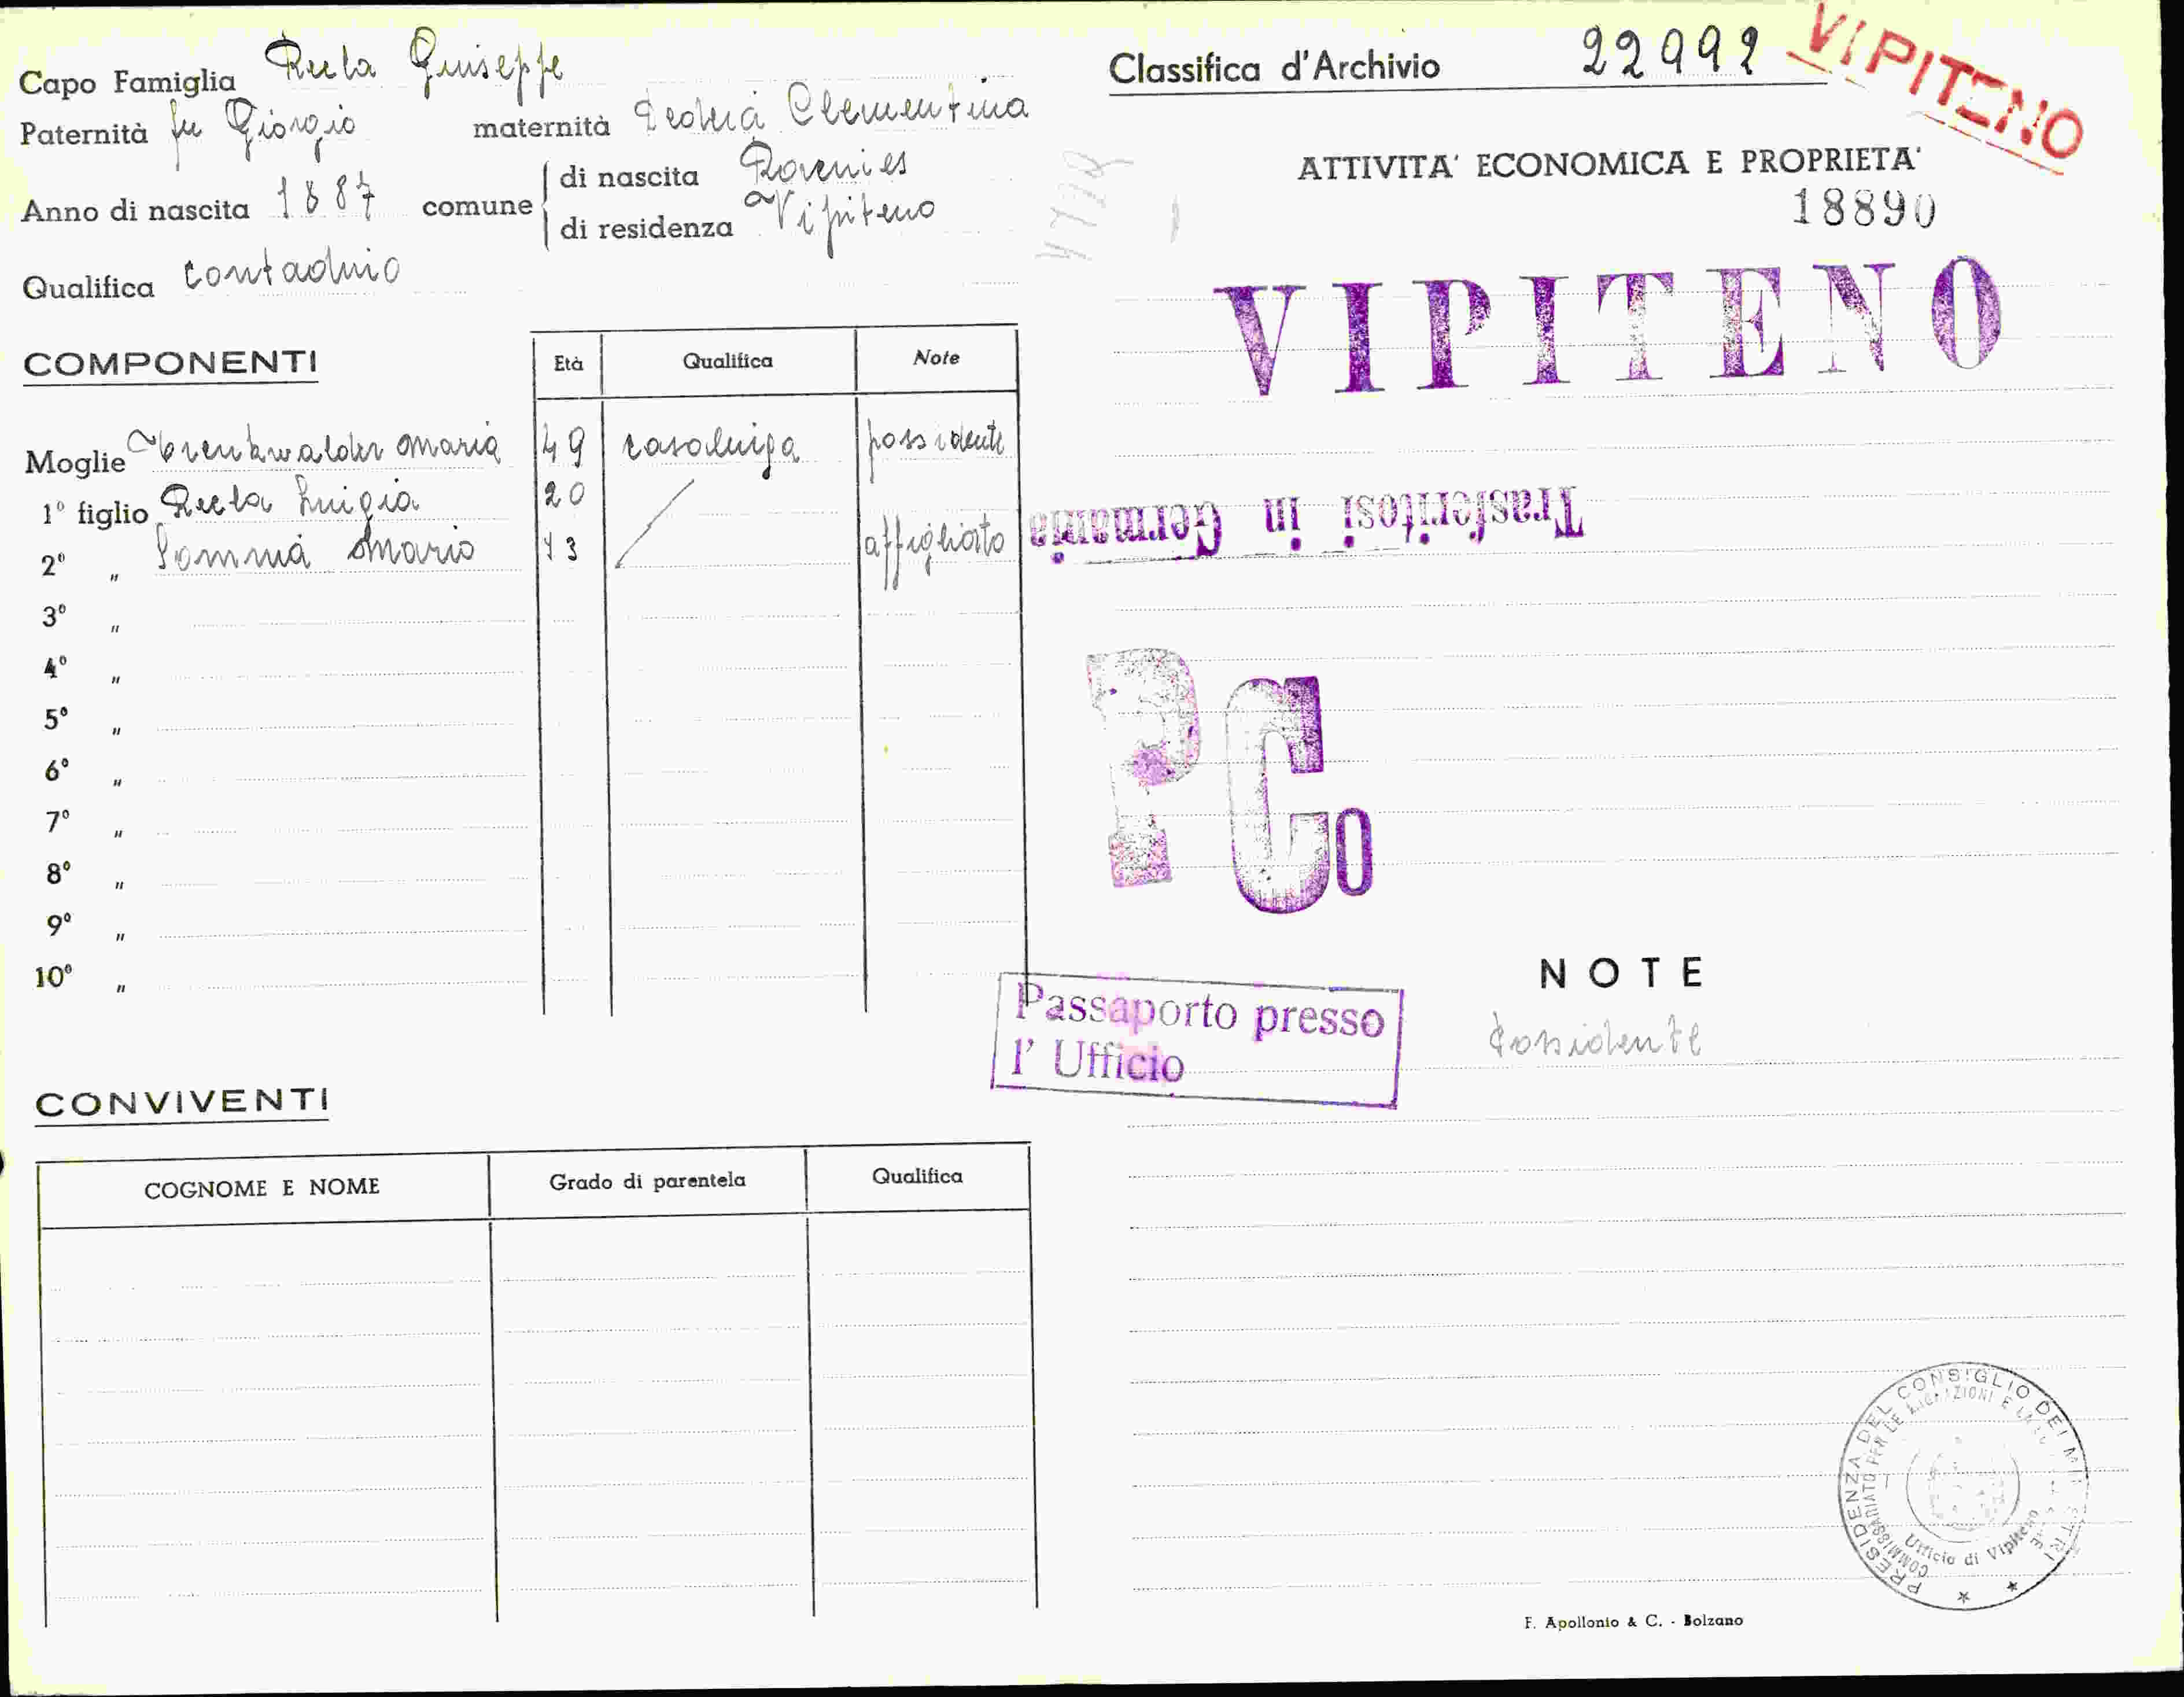 Capo Famiglia Ruta Giuseppe
Paternità fu Giorgio maternità Clementina
Anno di nascita 1887 comune di nascita
di residenza Vipiteno
Qualifica contadino
COMPONENTI
Età Qualifica Note
Moglie Trenkwalder Maria 49 casalinga possidente
1º figlio Ruta Luigia 20
2º „ Sommà Mario 13 affigliato
3º „
4º „
5º „
6º „
7º „
8º „
9º „
10º „
CONVIVENTI
COGNOME E NOME Grado di parentela Qualifica
Classifica d'Archivio 22992
VIPITENO
ATTIVITA' ECONOMICA E PROPRIETA'
18890
VIPITENO
Trasferitosi in Germania
PCo
Passaporto presso
l' Ufficio
NOTE
Possidente
PRESIDENZA DEL CONSIGLIO DEI MINISTRI
COMMISSARIATO PER LE MIGRAZIONI E LA
Ufficio di Vipiteno
F. Apollonio & C. - Bolzano